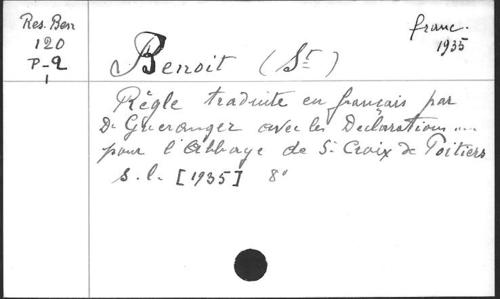 Res. Ben
120
P-2
1
franc.
1935
Benoit (St)
Règle traduite en français par
D. Gueranger avec les Declarations ...
pour l'Abbaye de Ste Croix de Poitiers
s.l. [1935] 8°